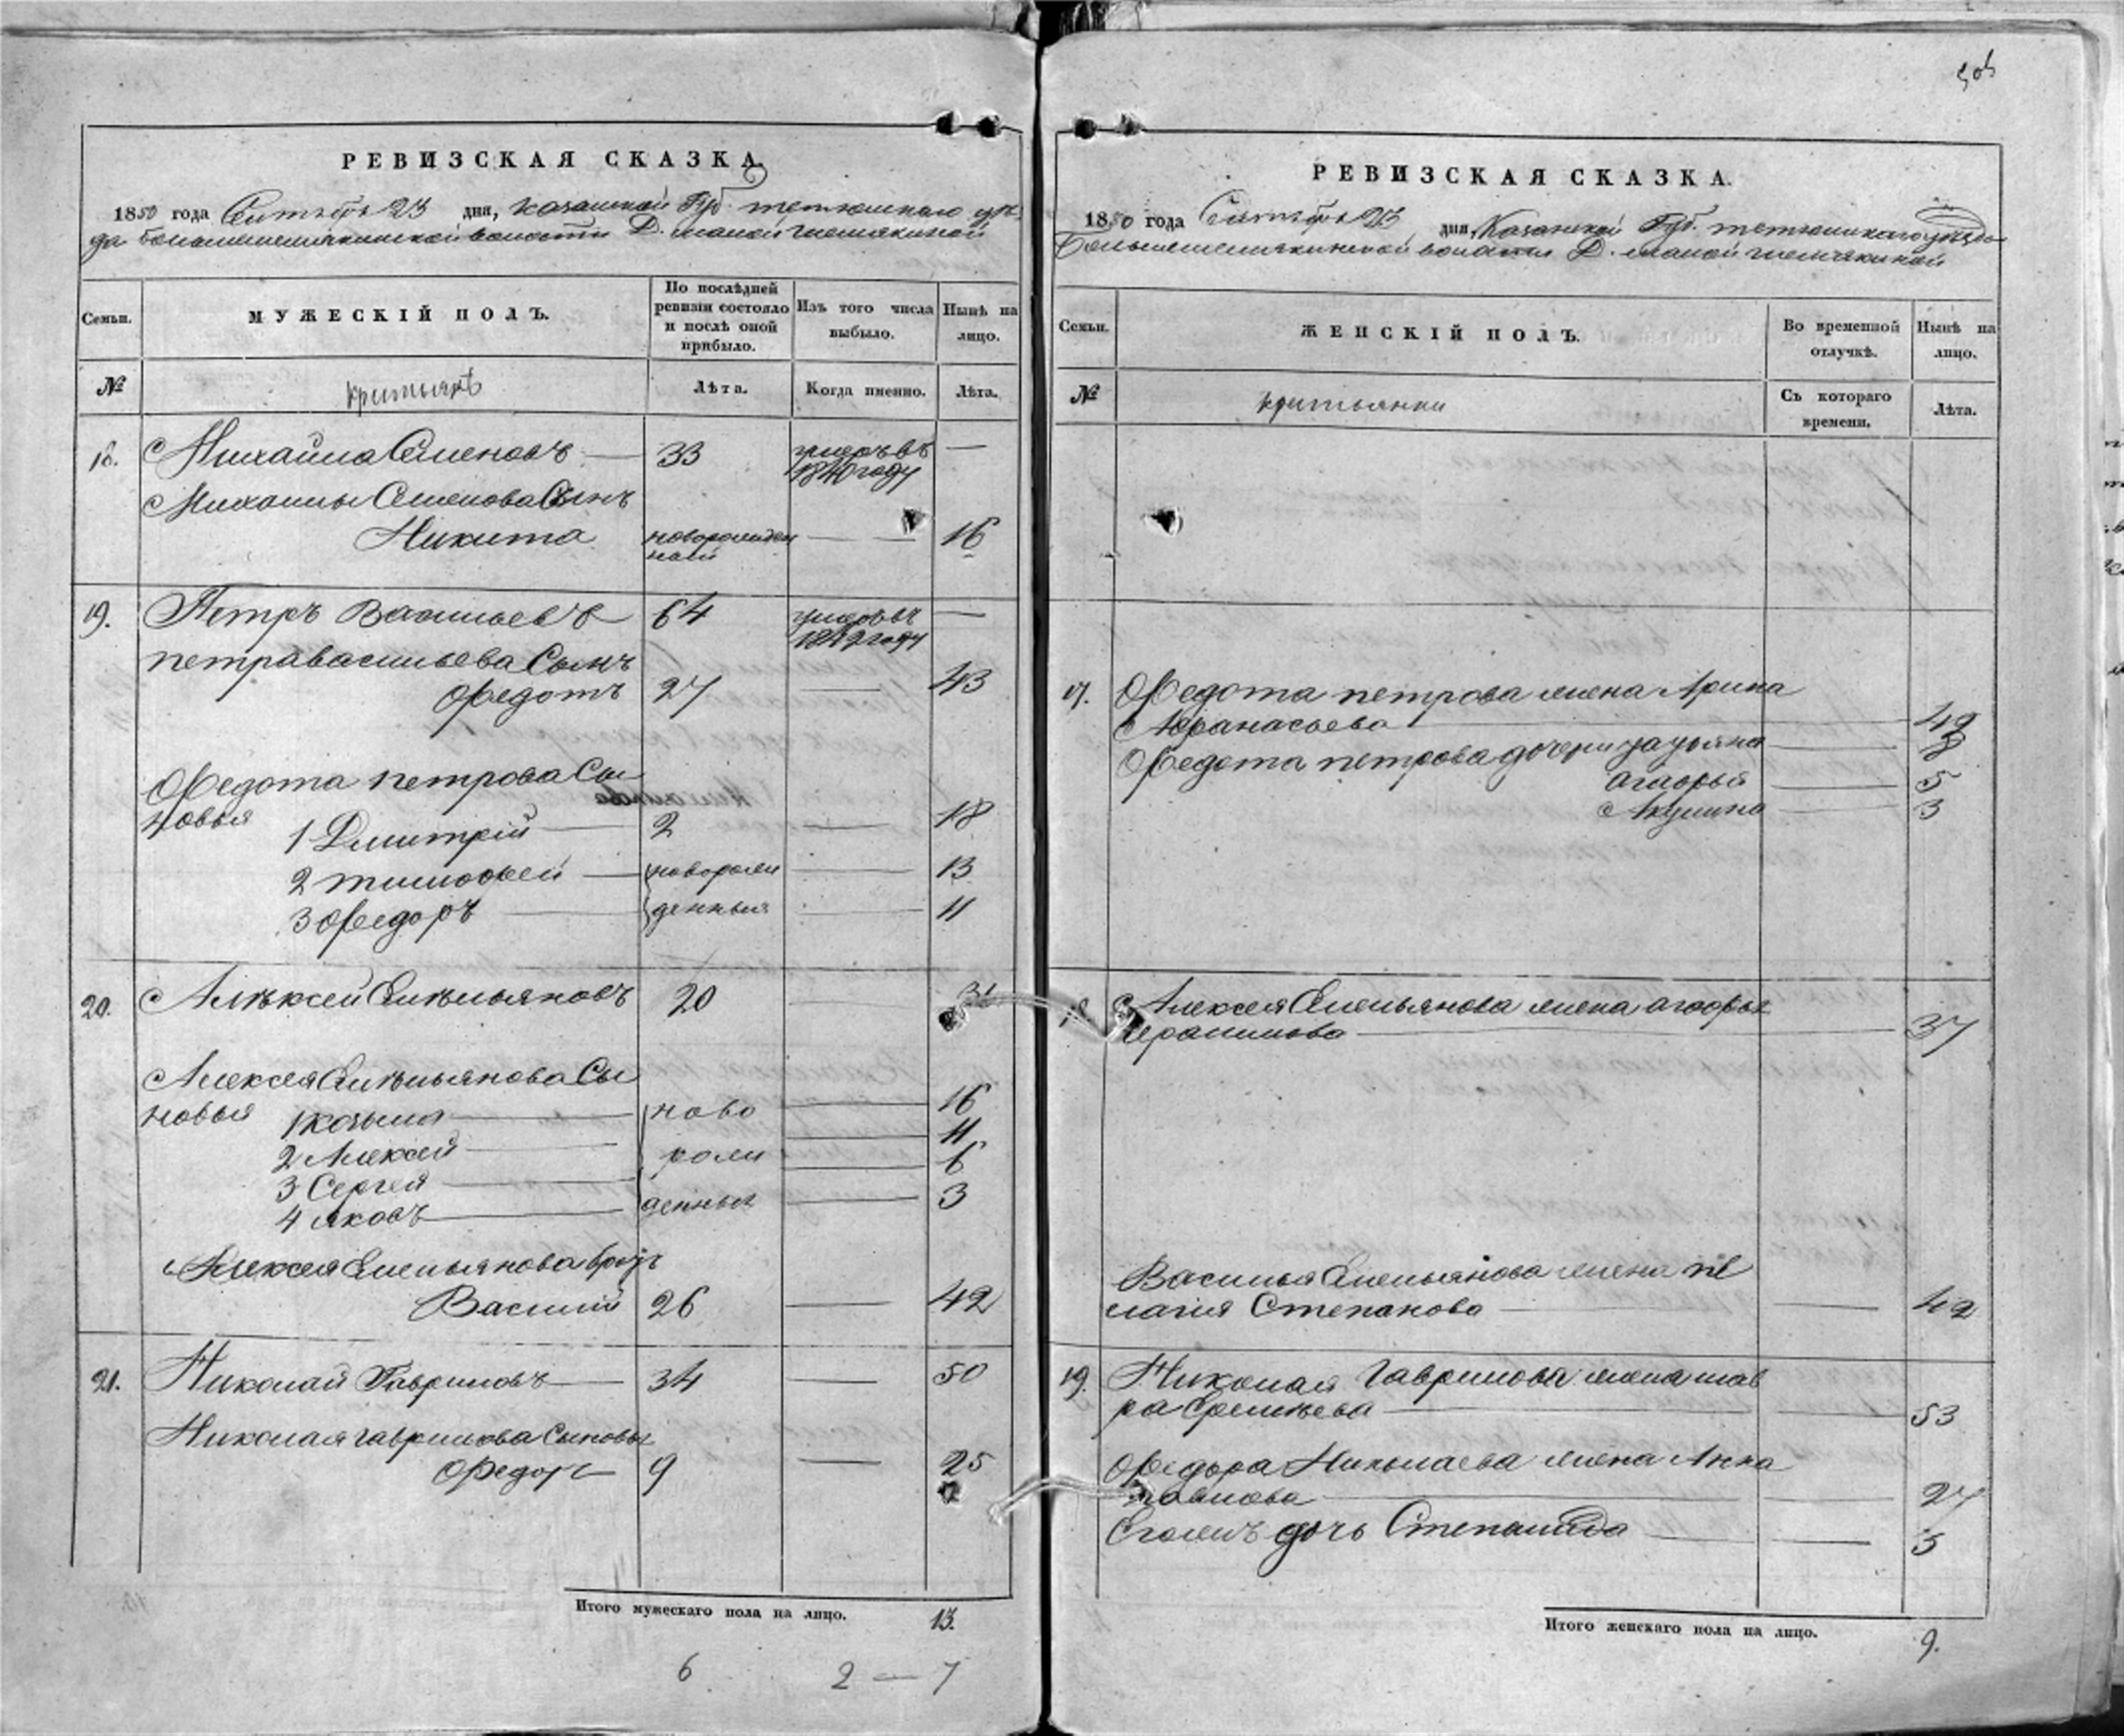 РЕВИЗСКАЯ СКАЗКА.
1850 года Сентября 23 дня, Казанской Губ. тетюшскаго уѣз
да большешемякинской волости Д. малой шемякиной
Семьи.
МУЖЕСКІЙ ПОЛЪ.
По послѣдней ревизіи состояло и послѣ оной прибыло.
Изъ того числа выбыло.
Нынѣ на лицо.
№
крестьянѣ
Лѣта.
Когда именно.
Лѣта.
18. Михайла Семеновъ — 33 умеръ въ 1840 году —
Михаилы Семенова Сынъ
Никита новорожден ной — 16
19. Петръ Васильевъ 64 умеръ въ 1842 году —
петра васильева Сынъ
Ѳедотъ 27 — 43
Ѳедота петрова Сы
новья 1 Дмитрій — 2 — 18
2 тимоѳей — новорож — 13
3 Ѳедоръ — денныя — 11
20. Алѣксей Емельяновъ 20
Алексея Емельянова Сы
новья 1 козьма — ново — 16
2 Алексей — рож — 11
3 Сергея — 6
4 яковъ — денныя — 3
Алексея Емельянова братъ
Василий 26 — 42
21. Николай Гавриловъ — 34 — 50
Николая гаврилова Сыновья
Ѳедоръ 9 — 25
Итого мужескаго пола на лицо. 13.
6 2 — 7
РЕВИЗСКАЯ СКАЗКА.
1850 года Сентября 23 дня, Казанской Губ. тетюшскаго уѣзда
Большешемякинской волости Д. малой шемякиной
Семьи.
ЖЕНСКІЙ ПОЛЪ.
Во временной отлучкѣ.
Нынѣ на лицо.
№
крестьянки
Съ котораго времени.
Лѣта.
17. Ѳедота петрова жена Арина
Аѳанасьева — 42
Ѳедота петрова дочери — 8
агаѳья — 5
Акулина — 3
18. Алексея Емельянова жена агаѳья
герасимова — 37
Василья Емельянова жена пе
лагия Степанова — 42
19. Николая Гаврилова жена мав
ра Еремѣева — 53
Ѳедора Николаева жена Анна
павлова — 27
Егожъ дочь Степанида — 3
Итого женскаго пола на лицо. 9.